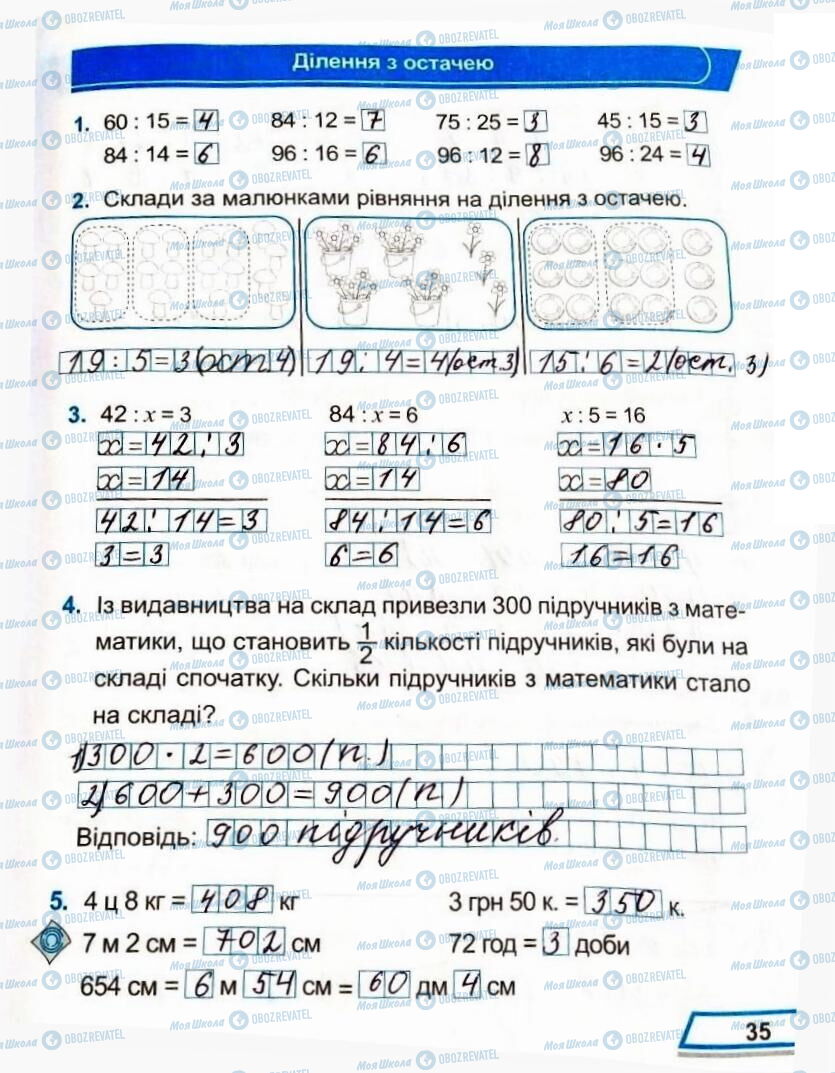 Ділення з остачею
1. 60 : 15 = 4 84 : 12 = 7 75 : 25 = 3 45 : 15 = 3
84 : 14 = 6 96 : 16 = 6 96 : 12 = 8 96 : 24 = 4
2. Склади за малюнками рівняння на ділення з остачею.
19 : 5 = 3 (ост. 4) 19 : 4 = 4 (ост. 3) 15 : 6 = 2 (ост. 3)
3. 42 : x = 3 84 : x = 6 x : 5 = 16
x = 42 : 3 x = 84 : 6 x = 16 · 5
x = 14 x = 14 x = 80
42 : 14 = 3 84 : 14 = 6 80 : 5 = 16
3 = 3 6 = 6 16 = 16
4. Із видавництва на склад привезли 300 підручників з мате-
матики, що становить 1/2 кількості підручників, які були на
складі спочатку. Скільки підручників з математики стало
на складі?
1) 300 · 2 = 600 (п.)
2) 600 + 300 = 900 (п)
Відповідь: 900 підручників.
5. 4 ц 8 кг = 408 кг 3 грн 50 к. = 350 к.
7 м 2 см = 702 см 72 год = 3 доби
654 см = 6 м 54 см = 60 дм 4 см
35
МояШкола OBOZREVATEL